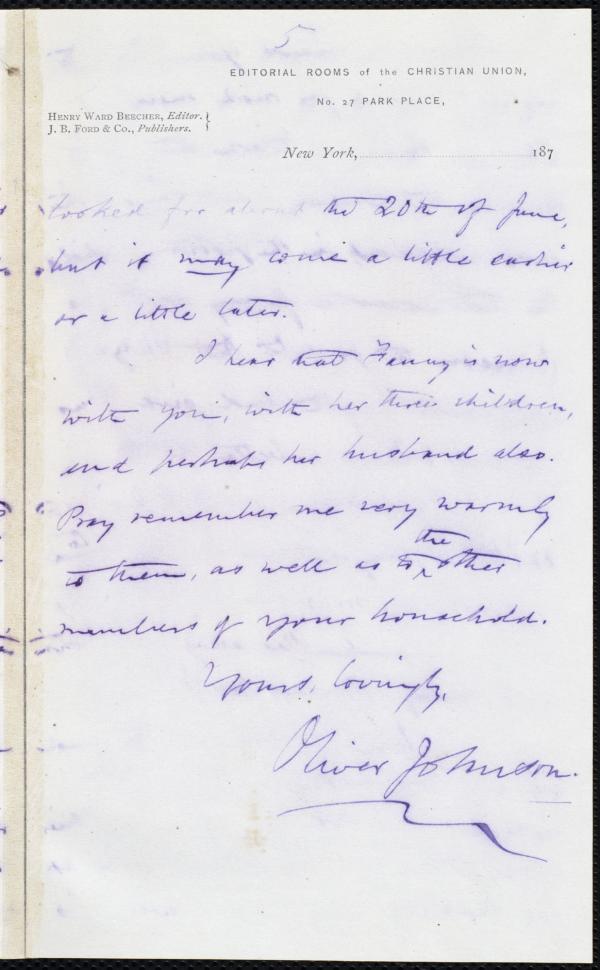 5
EDITORIAL ROOMS of the CHRISTIAN UNION,
No. 27 PARK PLACE,
HENRY WARD BEECHER, Editor.
J. B. FORD & CO., Publishers.
New York, 187
looked for about the 20th of June,
but it may come a little earlier
or a little later.
I hear that Fanny is now
with you, with her three children,
and perhaps her husband also.
Pray remember me very warmly
to them, as well as to the other
members of your household.
Yours, lovingly,
Oliver Johnson.